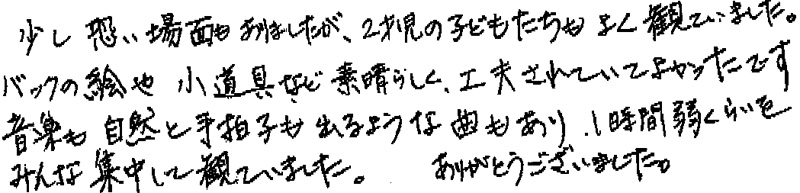 少し恐い場面もありましたが、2才児の子どもたちもよく観ていました。
バックの絵や小道具など素晴らしく、工夫されていてよかったです
音楽も自然と手拍子も出るような曲もあり、1時間弱くらいを
みんな集中して観ていました。 ありがとうございました。